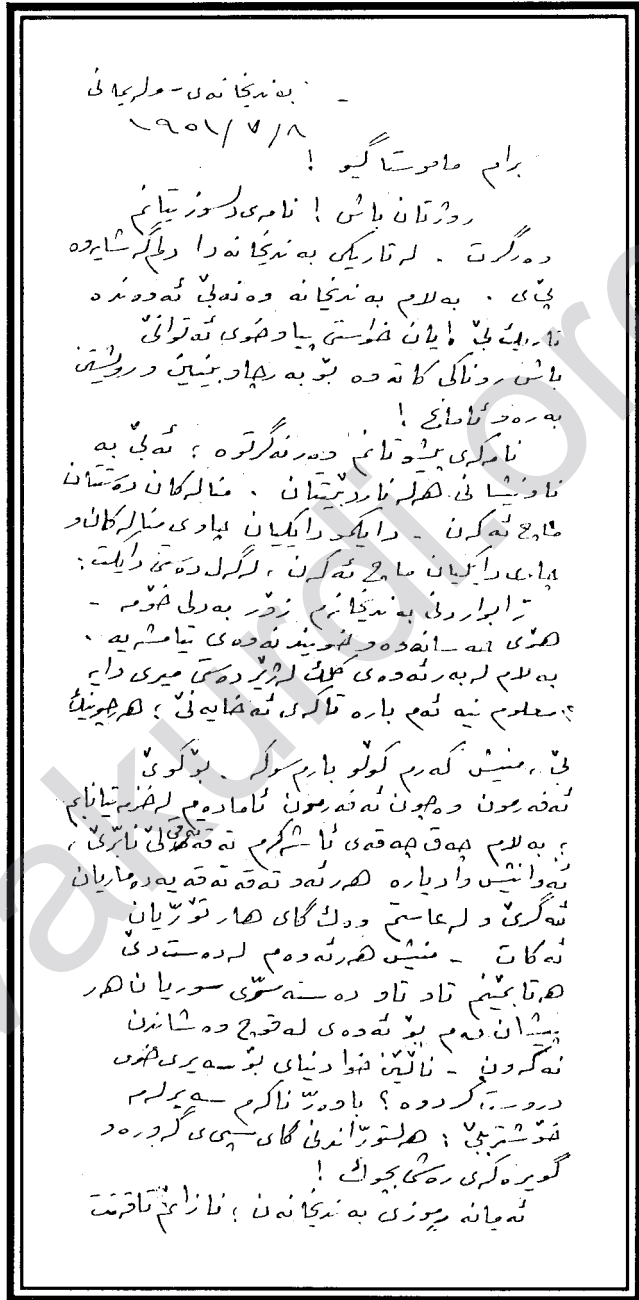 بەندیخانەی - سولەیمانی
١٩٥١/٧/٨
برام مامۆستا گیو !
رۆژتان باش ! نامەی دلسوزیتانم
وەرگرت . لە تاریکی بەندیخانەدا دلم گەشایەوە
پێی . بەلام بەندیخانە وەنەبێ ئەوەندە
تاریک بێ ، یان خواستی پیاو خۆی ئەتوانێ
باش روناکی کاتەوە بۆ بەرچاو بینین و رویشتن
بەرەو ئامانج !
نامەکەی پیشوتانم وەرنەگرتوە ؛ ئەبێ بە
ناونیشانی هەلە ناردبێتتان . منالەکان دەستتان
ماچ ئەکەن - دایکم و دایکیان چاوی منالەکان و
چاوی دایکیان ماچ ئەکەن ، لەگەل دەستی دایکت :
رابواردنی بەندیخانەم زۆر بەدلی خۆمە -
هۆی حەسانەوە و خویندنەوەی تیامشە یە .
بەلام لەبەر ئەوەی کلک لەژێر دەستی میری دایە
مەعلوم نیە ئەم بارە تاکەی ئەخایەنێ ؛ هەرچونێک
بێ ، منیش کەرم کۆلو بارم سوکە . بۆ کوێ
ئەفەرمون وەچون ئەفەرمون ئامادەم لە خزمەتیانایم
، بەلام چەق چەقەی ئاشەکەم تەقەی لێ نابڕێ ،
ئەوانیش وادیارە هەر ئەو تەقە تەقە یە دەماریان
ئەگرێ و لە عاستم وەک گای هار تۆڕیان
ئەکات - منیش هەر ئەوەم لەدەست دێ
هەتا بمێنم تاو تاو دەستەسڕی سوریان هەر
پیشان بدەم بۆ ئەوەی لە قوچ وەشاندن
نەکەون - نالێن خوا دنیای بۆ سەیری خۆی
دروست کردوە ؟ باوەڕ ناکەم سەیر لەمە
خۆشتر ببێ : هەلتۆڕاندنی گای سپی گەورە و
گویرەکەی رەشی بچوک !
ئەمانە رموزی بەندیخانەن ؛ نازانم تاقەت